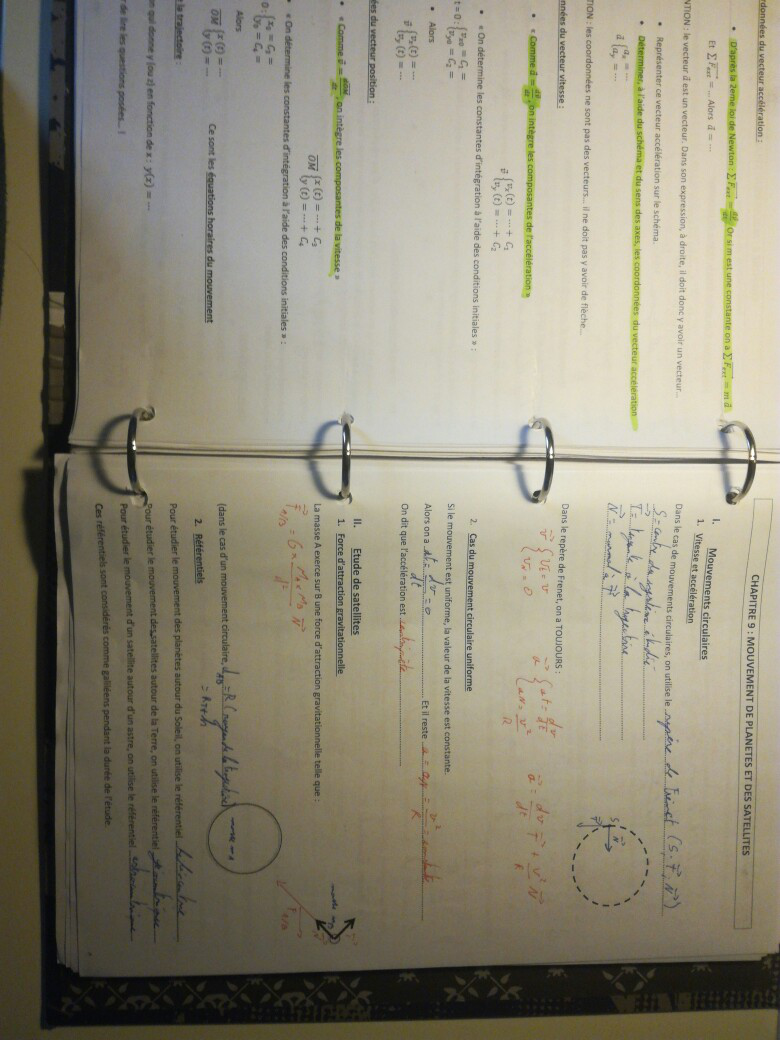 rdonnées du vecteur accélération :
D'après la 2ème loi de Newton : ∑F⃗ext = dp⃗/dt. Or si m est une constante on a ∑F⃗ext = m a⃗
Et ∑F⃗ext = ... Alors a⃗ = ...
NTION : le vecteur a⃗ est un vecteur. Dans son expression, à droite, il doit donc y avoir un vecteur...
Représenter ce vecteur accélération sur le schéma.
Déterminer, à l'aide du schéma et du sens des axes, les coordonnées du vecteur accélération
a⃗ { ax = ...
ay = ...
TION : les coordonnées ne sont pas des vecteurs... il ne doit pas y avoir de flèche...
nnées du vecteur vitesse :
« Comme a⃗ = dv⃗/dt, on intègre les composantes de l'accélération »
v⃗ { vx (t) = ... + C1
vy (t) = ... + C2
« On détermine les constantes d'intégration à l'aide des conditions initiales » :
t = 0 : { vx0 = C1 =
vy0 = C2 =
Alors
v⃗ { vx (t) = ...
vy (t) = ...
es du vecteur position :
« Comme v⃗ = dOM⃗/dt, on intègre les composantes de la vitesse »
OM⃗ { x (t) = ... + C3
y (t) = ... + C4
« On détermine les constantes d'intégration à l'aide des conditions initiales » :
0 : { x0 = C3 =
y0 = C4 =
Alors
OM⃗ { x (t) = ...
y (t) = ...
Ce sont les équations horaires du mouvement
la trajectoire :
n qui donne y (ou z) en fonction de x : y(x) = ...
de lire les questions posées... !
CHAPITRE 9 : MOUVEMENT DE PLANETES ET DES SATELLITES
I. Mouvements circulaires
1. Vitesse et accélération
Dans le cas de mouvements circulaires, on utilise le repère de Frenet (S, T⃗, N⃗)
S = centre du système étudié
T⃗ = tangente à la trajectoire
N⃗ = normal à T⃗
S N⃗
T⃗
Dans le repère de Frenet, on a TOUJOURS :
v⃗ { vt = v
vn = 0
a⃗ { at = dv/dt
an = v²/R
a⃗ = dv/dt T⃗ + v²/R N⃗
2. Cas du mouvement circulaire uniforme
Si le mouvement est uniforme, la valeur de la vitesse est constante.
Alors on a at = dv/dt = 0 Et il reste a = an = v²/R = constante
On dit que l'accélération est centripète
II. Etude de satellites
1. Force d'attraction gravitationnelle
La masse A exerce sur B une force d'attraction gravitationnelle telle que :
F⃗A/B = G × MA × MB / d² N⃗
masse mB
F⃗A/B
masse mA
(dans le cas d'un mouvement circulaire, dAB = R (rayon de la trajectoire)
2. Référentiels
Pour étudier le mouvement des planètes autour du Soleil, on utilise le référentiel héliocentrique
Pour étudier le mouvement des satellites autour de la Terre, on utilise le référentiel géocentrique
Pour étudier le mouvement d'un satellite autour d'un astre, on utilise le référentiel astrocentrique
Ces référentiels sont considérés comme galiléens pendant la durée de l'étude.